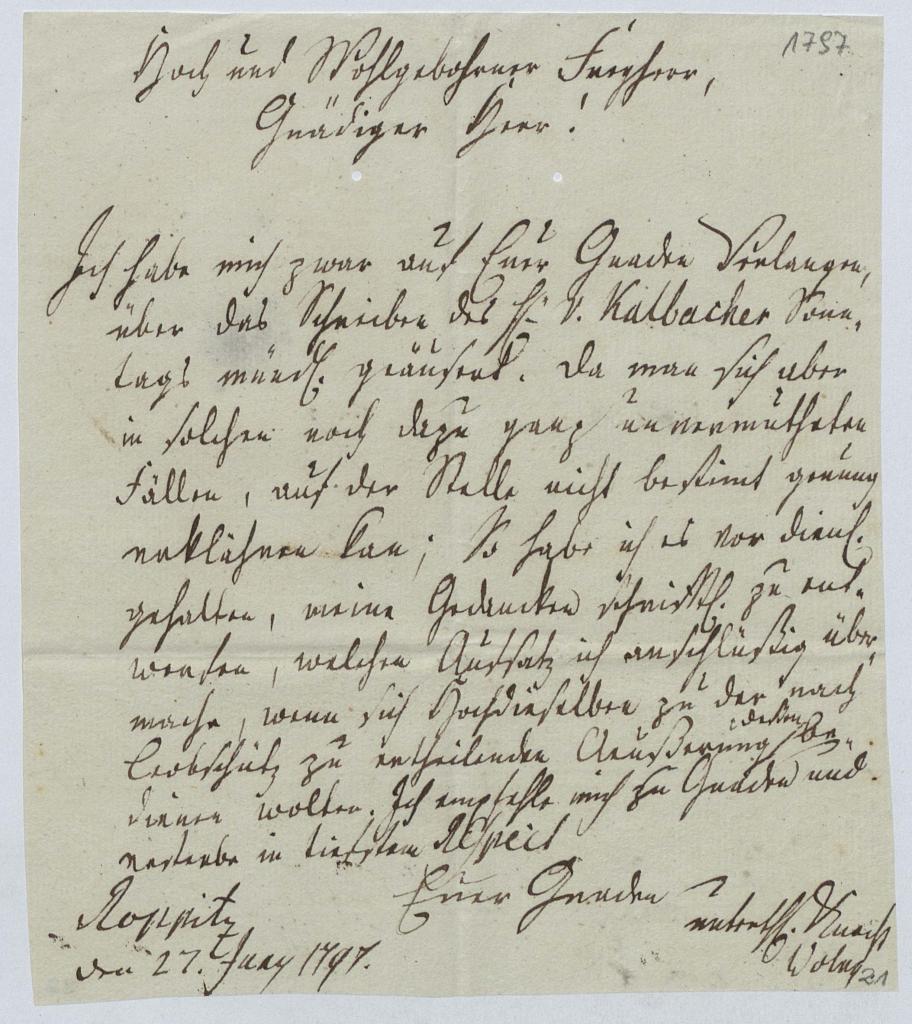 1797
Hoch und Wohlgebohrner Freyherr,
Gnädiger Herr!
Ich habe mich zwar auf Euer Gnaden Verlangen,
über das Schreiben des H. v. Kalbacher Sonn-
tags mündl. geäusert. Da man sich aber
in solchen noch dazu ganz unvermutheten
Fällen, auf der Stelle nicht bestimt genung
erklähren kan; So habe ich es vor dienl.
gehalten, meine Gedancken schriftl. zu ent-
werfen, welchen Aufsatz ich anschlüßig über-
mache, wenn sich Hochdieselben zu der nach
Leobschütz zu ertheilenden Aeußerung dessen be-
dienen wolten. Ich empfehle mich zu Gnaden und
ersterbe in tiefstem Respect
Euer Gnaden
Roppitz
den 27. Juny 1797.
unterth. Knecht
21